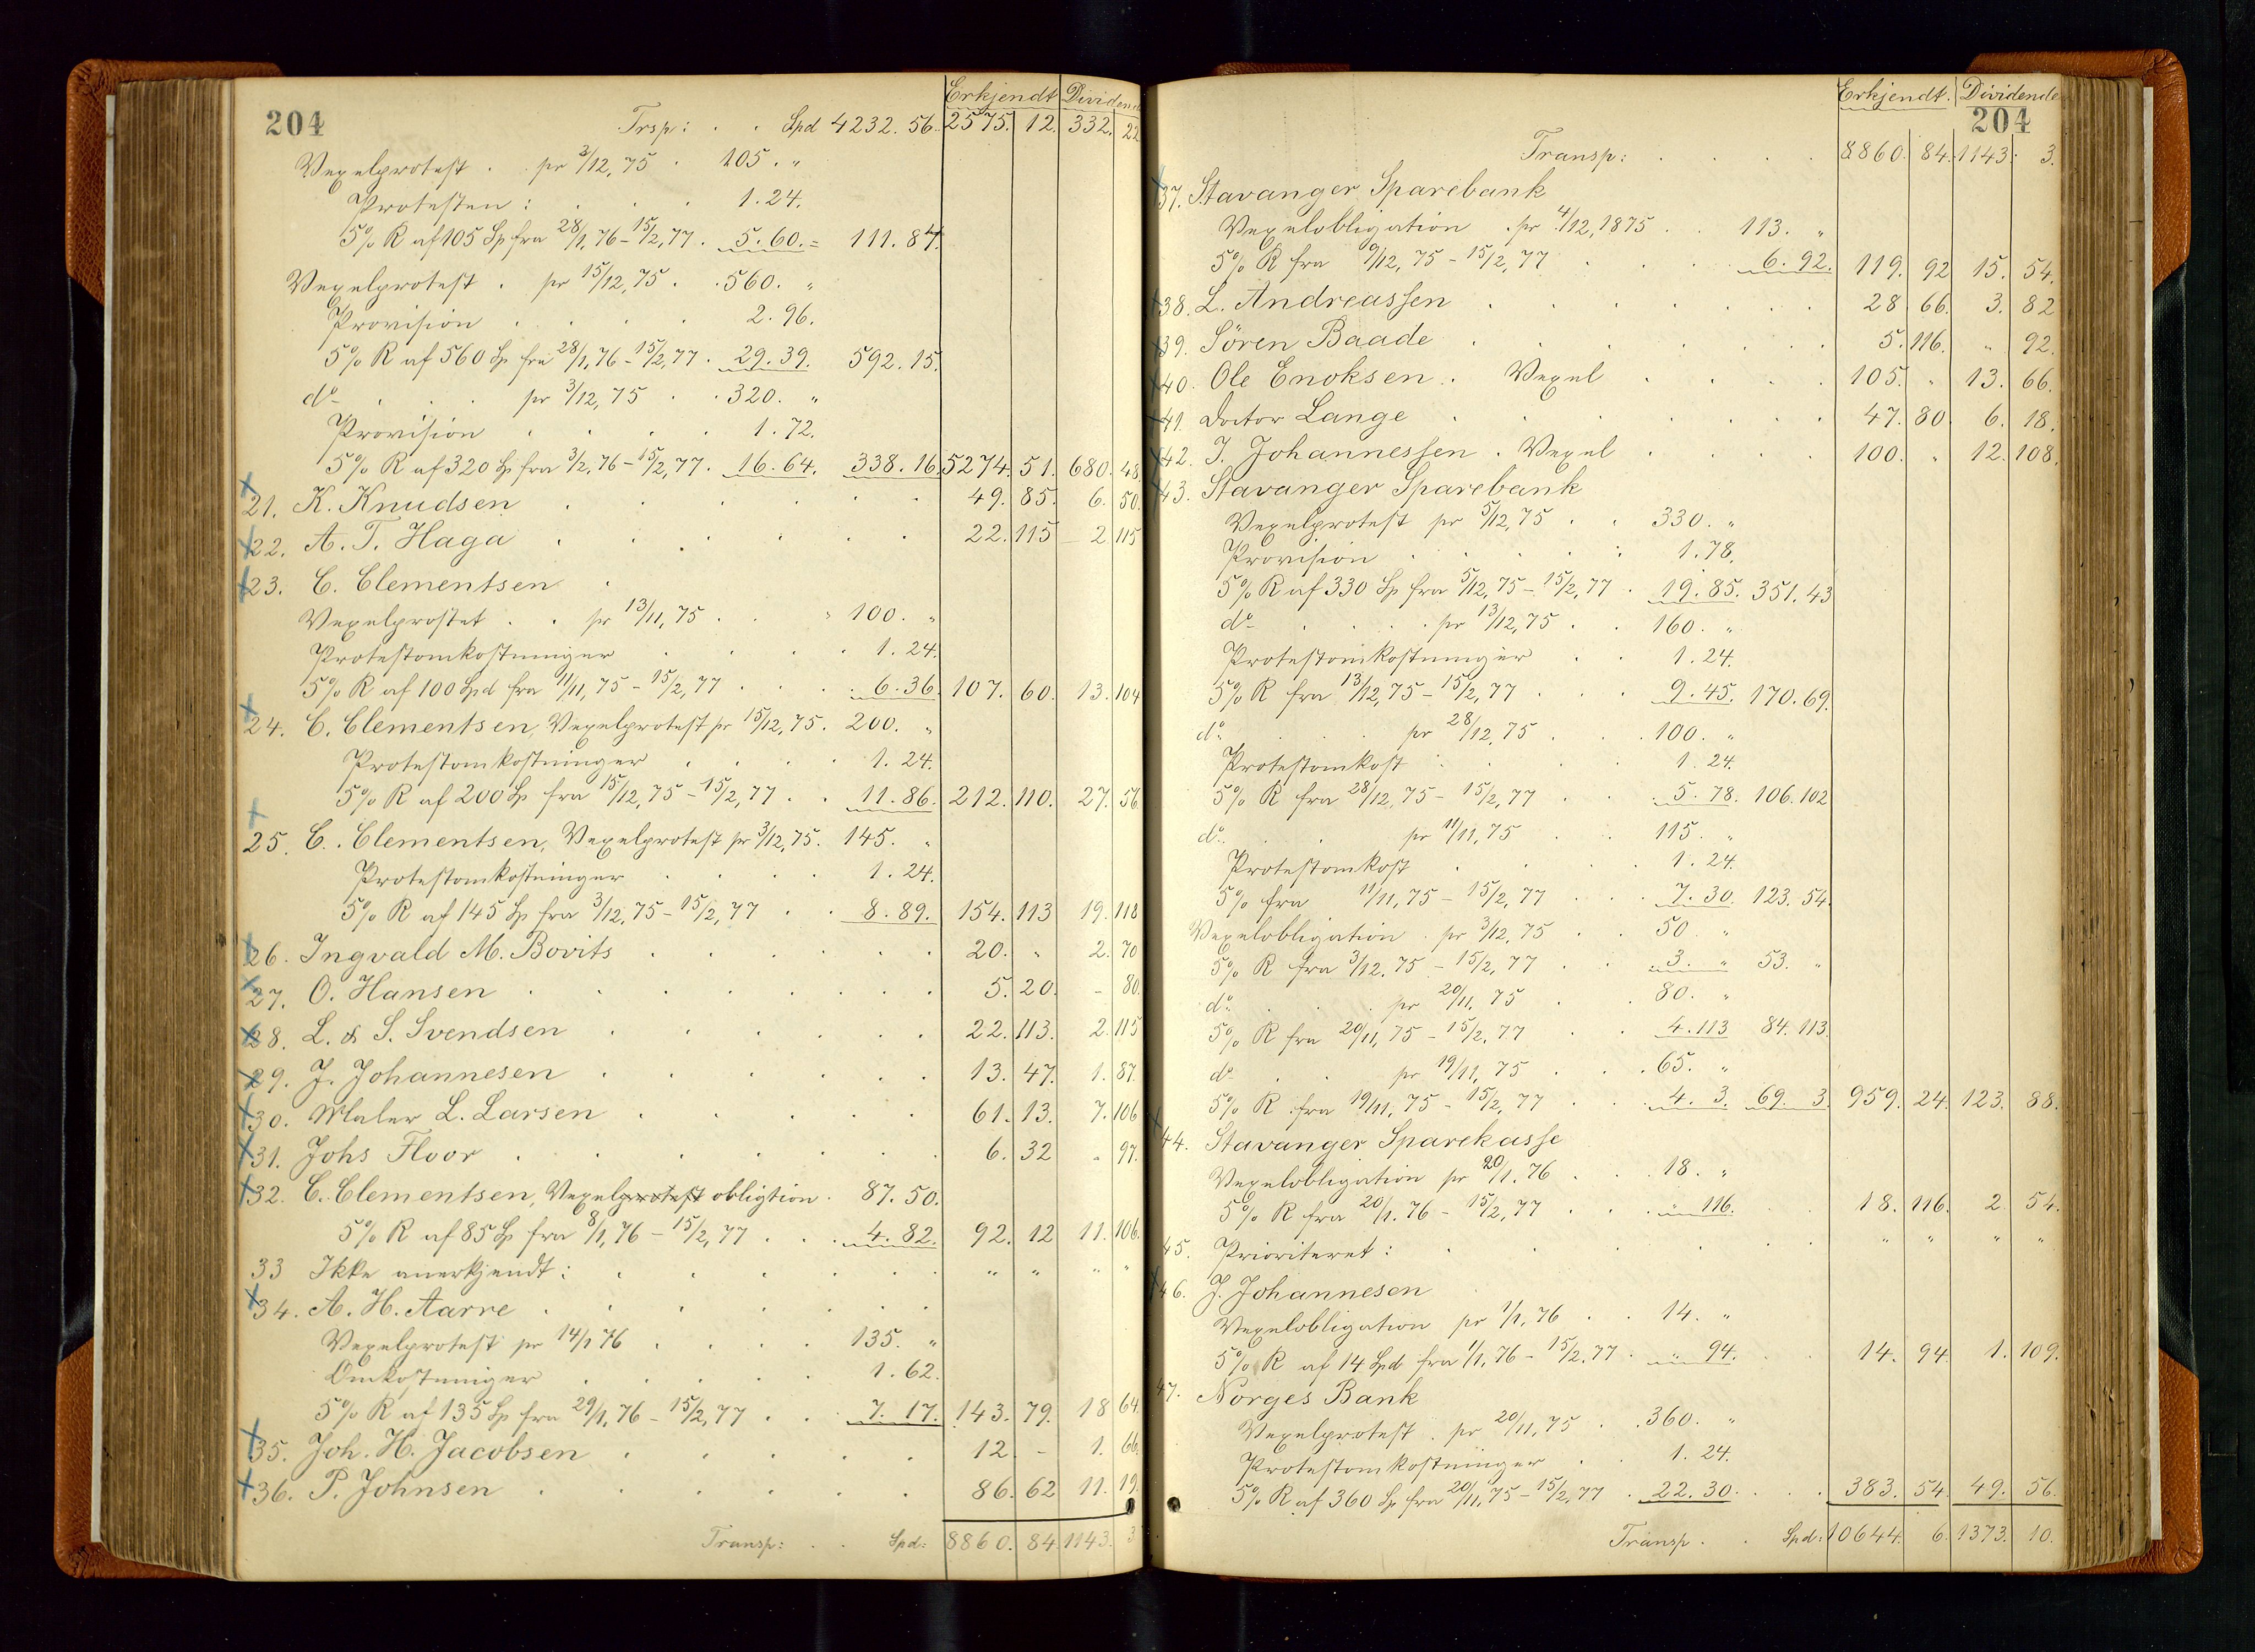 Erkjendt Dividende
204 Trsp: . . Spd 4232. 56. 2575. 12. 332. 22
Vexelprotest . pr 3/12, 75 . 105. "
Protesten : . . . 1. 24.
5% R af 105 Sp fra 28/1, 76 - 15/2, 77. 5. 60. = 111. 84.
Vexelprotest . pr 15/12, 75 . . 560. "
Provision . . . . 2. 96.
5% R af 560 Sp fra 28/1, 76 - 15/2, 77. 29. 39. 592. 15.
do . . . pr 3/12, 75 . . 320. "
Provision . . . . 1. 72.
5% R af 320 Sp fra 3/2, 76 - 15/2, 77. 16. 64. 338. 16. 5274. 51. 680. 48
21. K. Knudsen . . . . . . 49. 85. 6. 50.
22. A. T. Haga . . . . . . 22. 115 2. 115
23. C. Clementsen .
Vexelprostet . . pr 13/11, 75 . . " 100. "
Protestomkostninger . . . . 1. 24.
5% R af 100 Spd fra 11/11, 75 - 15/2, 77 . . . 6. 36. 107. 60. 13. 104
24. C. Clementsen, Vexelprotest pr 15/12, 75. 200. "
Protestomkostninger . . . . 1. 24.
5% R af 200 Sp fra 15/12, 75 - 15/2, 77 . . 11. 86. 212. 110. 27. 56
25. C. Clementsen, Vexelprotest pr 3/12, 75. 145. "
Protestomkostninger . . . . 1. 24.
5% R af 145 Sp fra 3/12, 75 - 15/2, 77 . . 8. 89. 154. 113 19. 118
26. Ingvald M. Bovits . . . . . . 20. " 2. 70
27. O. Hansen . . . . . . . 5. 20. - 80.
28. L. & S. Svendsen . . . . . . 22. 113. 2. 115
29. J. Johannesen . . . . . . 13. 47. 1. 87.
30. Maler L. Larsen . . . . . 61. 13. 7. 106
31. Johs Floor . . . . . . . 6. 32 " 97.
32. C. Clementsen, Vexelprotest obligtion . 87. 50.
5% R af 85 Sp fra 8/1, 76 - 15/2, 77 . . . 4. 82. 92. 12 11. 106.
33 Ikke anerkjendt: . . . . . . " " " "
34. A. H. Aarre . . . . . . .
Vexelprotest pr 14/1 76 . . . . 135. "
Omkostninger . . . . . 1. 62.
5% R af 135 Sp fra 29/1, 76 - 15/2, 77 . . 7. 17. 143. 79. 18 64.
35. Joh. H. Jacobsen . . . . . 12 - 1. 66.
36. P. Johnsen . . . . . . 86. 62 11. 19.
Transp: . . Spd: 8860. 84. 1143. 3
Erkjendt. Dividende
204
Transp: . . . . 8860. 84. 1143. 3.
37. Stavanger Sparebank
Vexelobligation . pr 4/12, 1875 . . 113. "
5% R fra 9/12, 75 - 15/2, 77 . . . 6. 92. 119. 92 15. 54.
38. L. Andreassen . . . . . . . 28. 66. 3. 82
39. Sören Baade . . . . . . . 5. 116. " 92.
40. Ole Enoksen . Vexel . . . . 105. " 13. 66.
41. Doctor Lange . . . . . . . 47. 80. 6. 18.
42. J. Johannessen . Vexel . . . . 100. " 12. 108.
43. Stavanger Sparebank
Vexelprotest pr 5/12, 75 . . 330. "
Provision . . . . . 1. 78.
5% R af 330 Sp fra 5/12, 75 - 15/2, 77 . 19. 85. 351. 43
do . . . . pr 13/12, 75 . . 160. "
Protestomkostninger . . 1. 24.
5% R fra 13/12, 75 - 15/2, 77 . . . 9. 45. 170. 69.
do . . . pr 28/12, 75 . . . 100. "
Protestomkost . . . . 1. 24.
5% R fra 28/12, 75 - 15/2, 77 . . . 5. 78. 106. 102
do . . . pr 11/11, 75 . . 115. "
Protestomkost . . . . 1. 24.
5% fra 11/11, 75 - 15/2, 77 . . . 7. 30. 123. 54.
Vexelobligation . pr 3/12, 75 . . 50. "
5% R fra 3/12. 75 - 15/2, 77 . . 3. " 53. "
do . . . pr 20/11, 75 . . 80. "
5% R fra 20/11, 75 - 15/2, 77 . . 4. 113 84. 113.
do . . pr 19/11, 75 . . . 65. "
5% R fra 19/11, 75 - 15/2, 77 . . . 4. 3. 69. 3. 959. 24. 123. 88.
44. Stavanger Sparekasse
Vexelobligation pr 20/1. 76 . . . 18. "
5% R fra 20/1. 76 - 15/2, 77 . . . " 116. . . 18. 116. 2. 54.
45. Prioriteret : . . . . . . " " " "
46. J. Johannesen
Vexelobligation pr 1/1, 76 . . 14. "
5% R af 14 Spd fra 1/1, 76 - 15/2. 77 . " 94. . . 14. 94. 1. 109.
47. Norges Bank
Vexelprotest . pr 20/11, 75 . . 360. "
Protestomkostninger . . 1. 24.
5% R af 360 Sp fra 20/11, 75 - 15/2, 77 . 22. 30. . . . 383. 54. 49. 56.
Transp . . Spd: 10644. 6. 1373. 10.